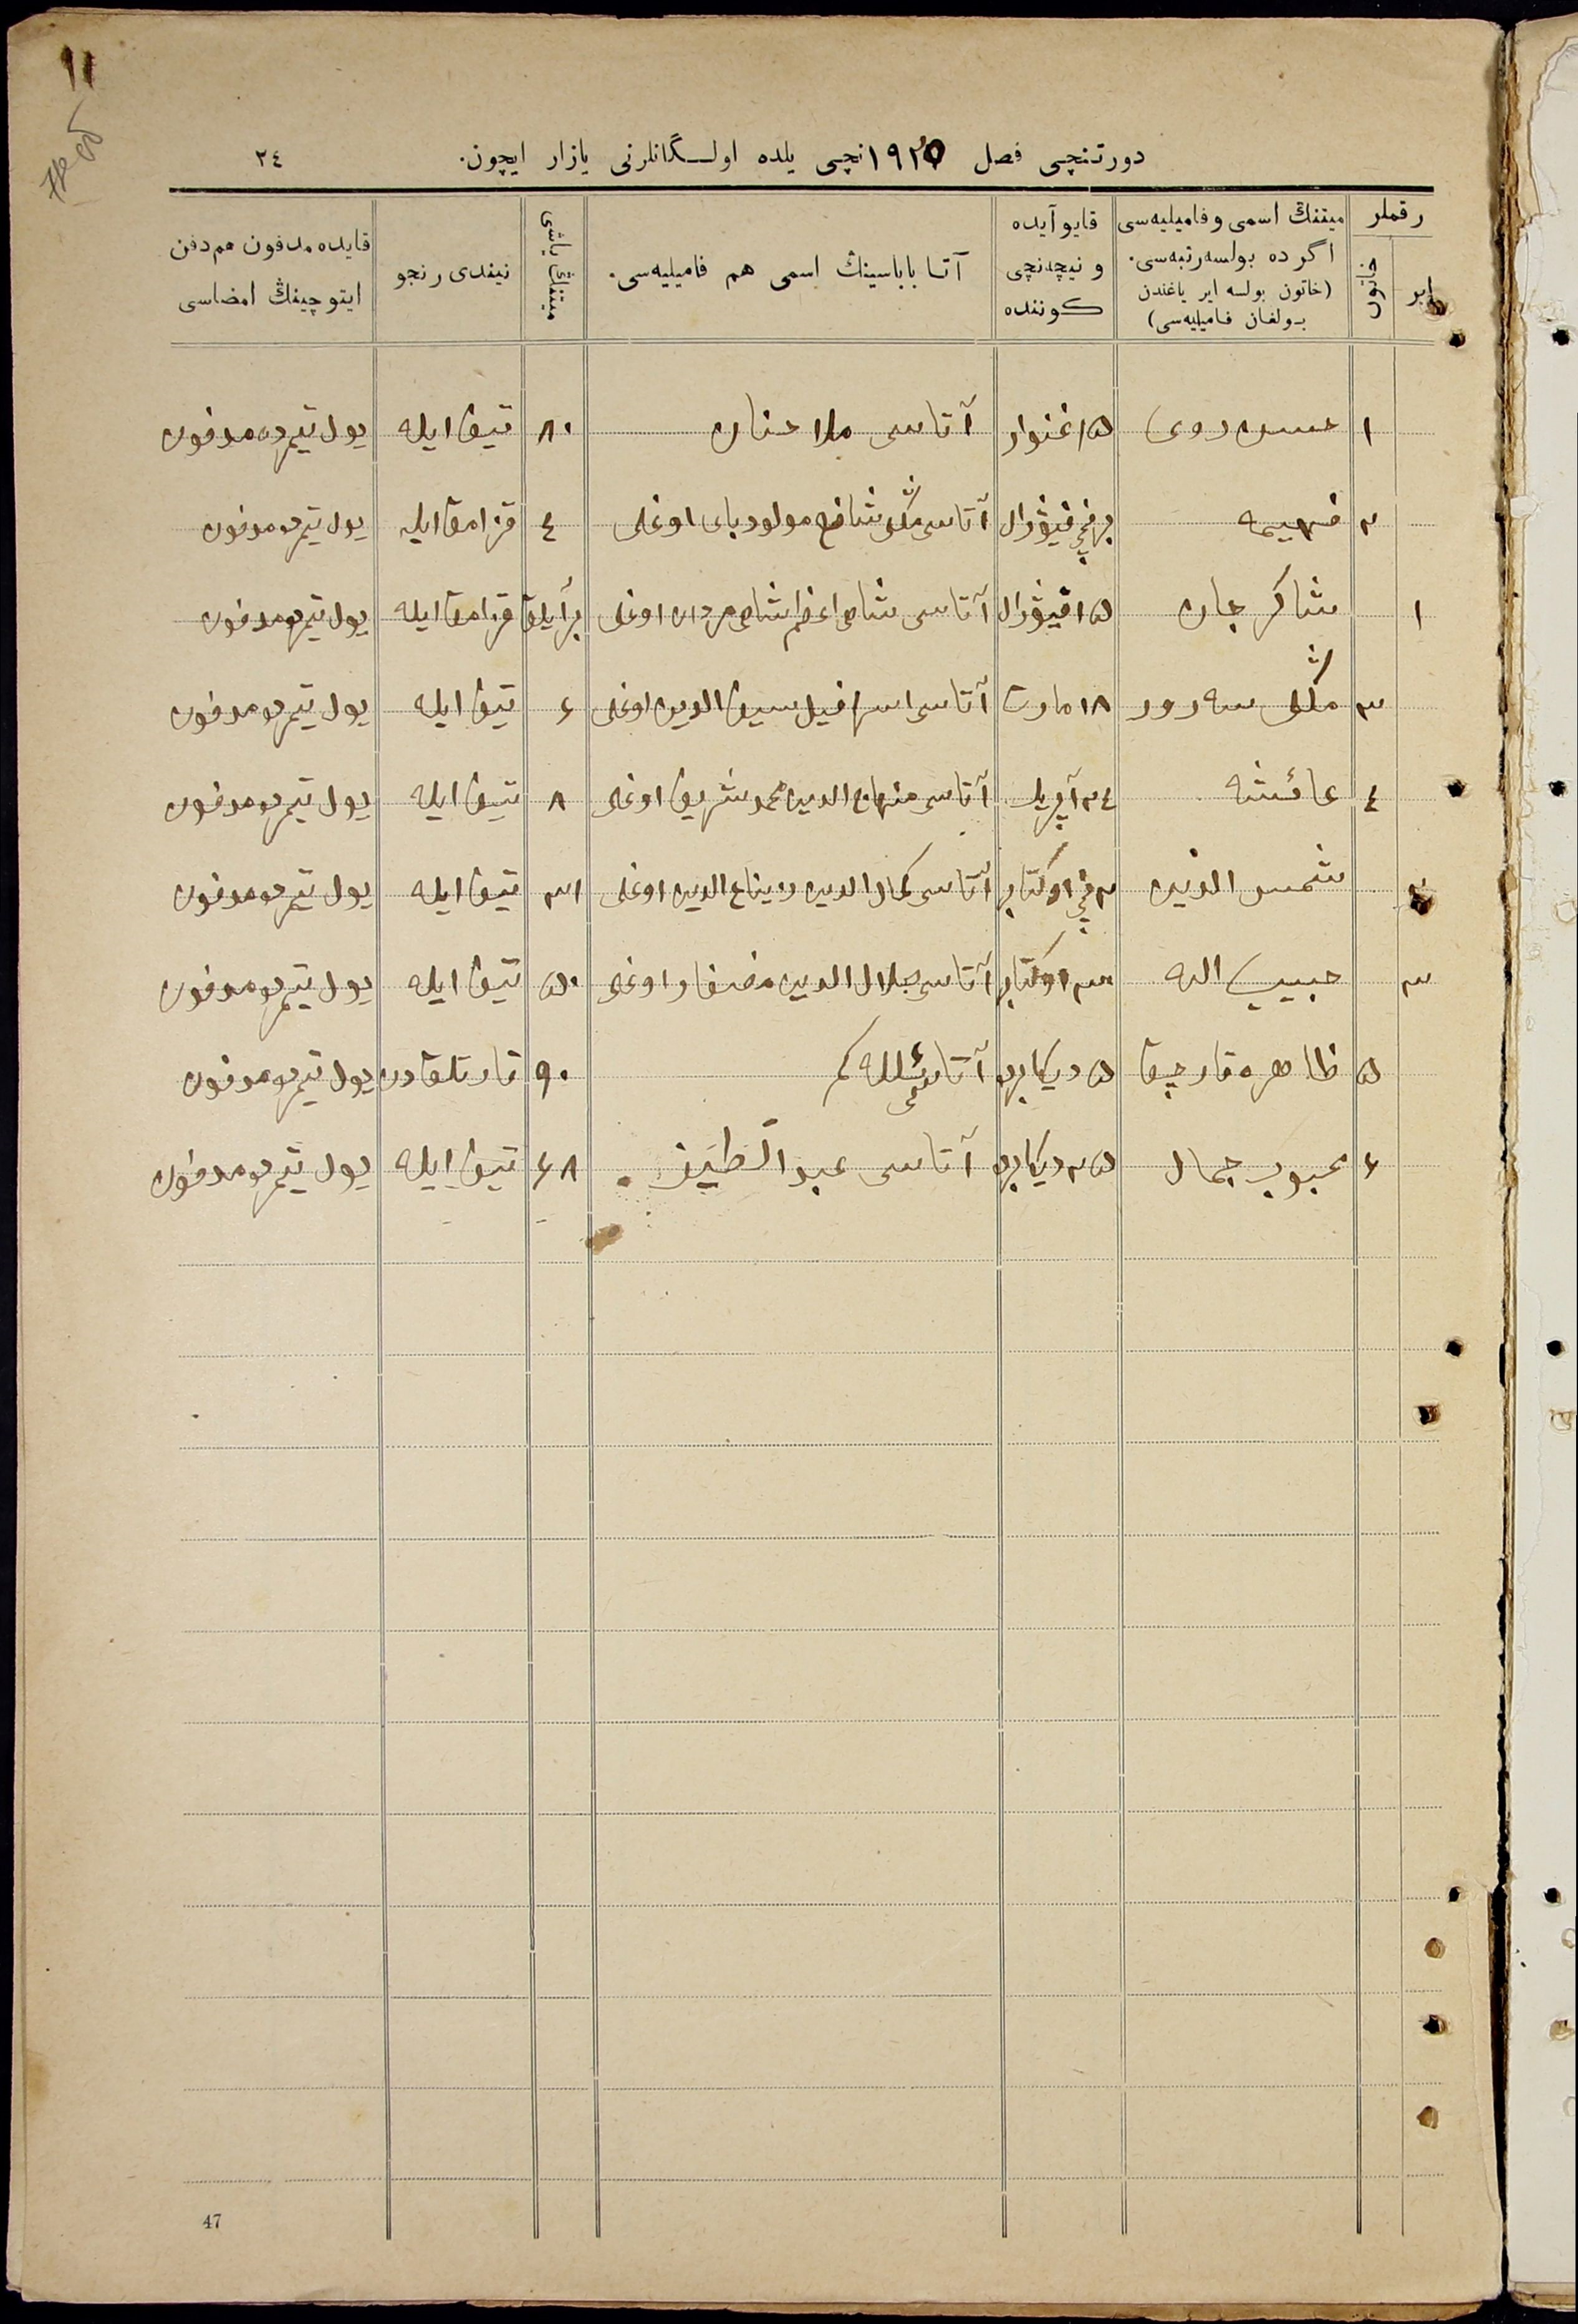 11
دورتنچی فصل ۱۹۲۵ نچی یلده اولـگانلرنی یازار ایچون.
۲٤
رقملر
ایر
خاتون
میتنڭ اسمی و فامیلیه‌سی
اگر ده بولسه رتبه‌سی.
(خاتون بولسه ایر یاغندن
بولغان فامیلیه‌سی)
قایو آیده
و نیچه‌نچی
کوننده
آتا باباسینڭ اسمی هم فامیلیه‌سی.
میتنڭ یاشی
نیندی رنجو
قایده مدفون هم دفن
ایتوچینڭ امضاسی
۱ حسن روی ۱۵ غنوار آتاسی ملا حنان ۸۰ تیف ایله یول تیمرده مدفون
۲ فهیمه فیورال آتاسی شافع مولود بای اوغلی ٤ قزامق ایله یول تیمرده مدفون
۱ شاکر جان ۱۵ فیورال آتاسی شاهی اعظم شاهی مردان اوغلی بر آیلق قزامق ایله یول تیمرده مدفون
۳ سه رور ۱۸ مارت آتاسی اسرافیل سیف الدین اوغلی ۶ تیف ایله یول تیمرده مدفون
٤ عائشه ۲٤ آپریل آتاسی منهاج الدین محمد شریف اوغلی ۸ تیف ایله یول تیمرده مدفون
۲ شمس الدین اوکتابر آتاسی کمال الدین اوغلی ۳۱ تیف ایله یول تیمرده مدفون
۳ حبیب الله اوکتابر آتاسی جلال الدین اوغلی ۵۰ تیف ایله یول تیمرده مدفون
۵ ظاهره قارچق ۵ دیکابرده آتاسی ۹۰ قارتلقدن یول تیمرده مدفون
۶ محبوب جمال ۲۵ دیکابرده آتاسی عبد الطیف. ۶۸ تیف ایله یول تیمرده مدفون
47